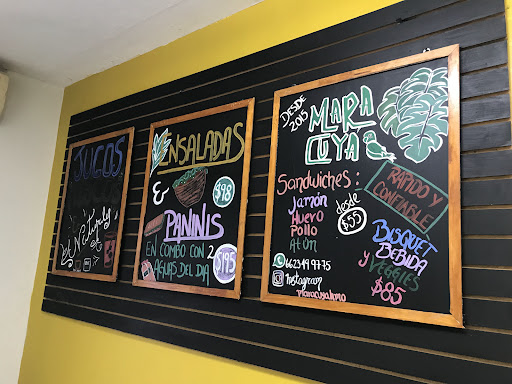 JUGOS
ENSALADAS
&
$98
PANINIS
EN COMBO CON 2
AGUAS DEL DIA
$195
DESDE
2015
MARA
CUYA
Sandwiches:
Jamón
Huevo
Pollo
Atún
desde
$55
RAPIDO Y
CONFIABLE
BISQUET
BEBIDA
Y VEGGIES
$85
Instagram